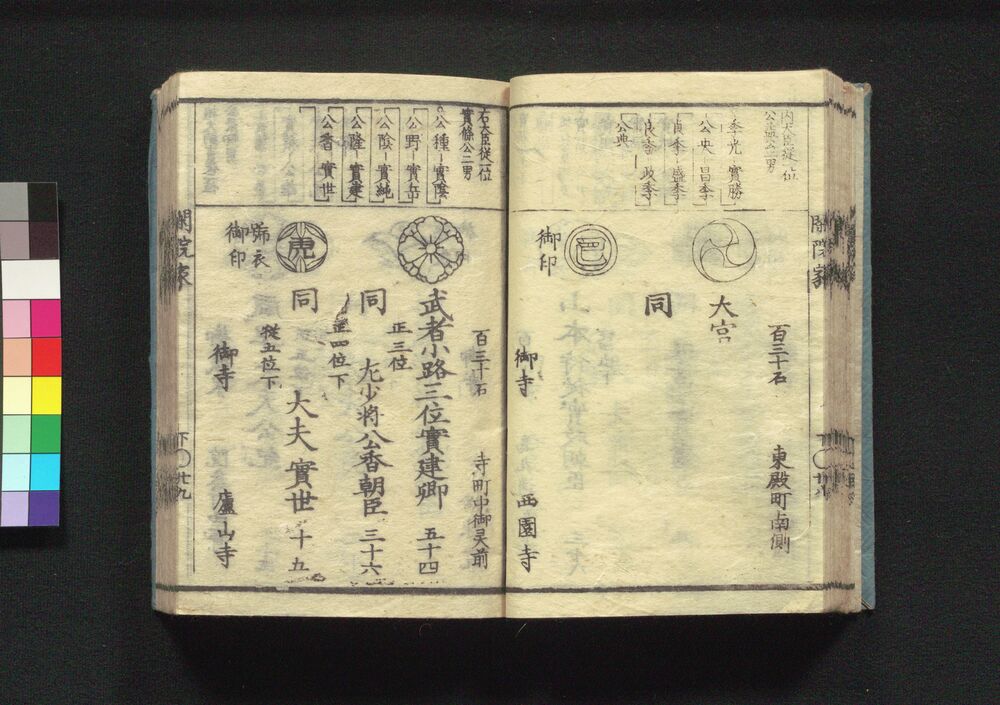 内大臣従一位
公益公二男
季光 實勝
公央 昌季
貞季 盛季
良季 政季
公典
閑院家
百三十石
東殿町南側
大宮
同
御印
御寺
西園寺
右大臣従一位
實條公二男
公種 實陰
公野 實岳
公陰 實純
公隆 實建
公香 實世
百三十石
寺町中御灵前
武者小路三位實建卿 五十四
正三位
同
左少将公香朝臣 三十六
正四位下
同
大夫實世 十五
従五位下
號衣
御印
御寺
廬山寺
閑院家
下 廿九